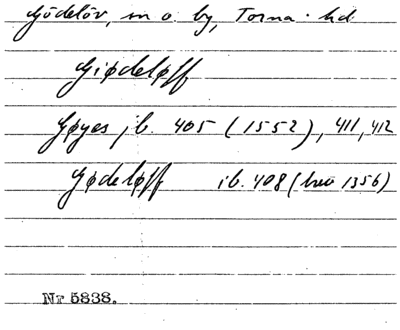 Gödelöv, sn o. by, Torna hd
Giødeløff
Gøyes jb. 405 (1552), 411, 412
Gødeløff ib. 408 (brev 1356)
Nr 5838.